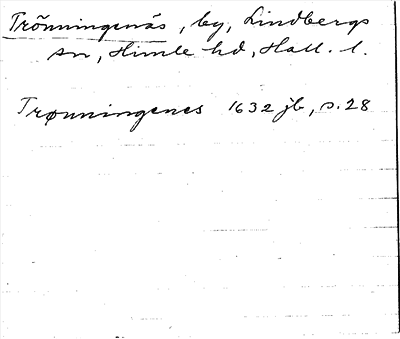 Trönningenäs, by, Lindbergs
sn, Himle hd, Hall. l.
Trønningenes 1632 jb, s. 28